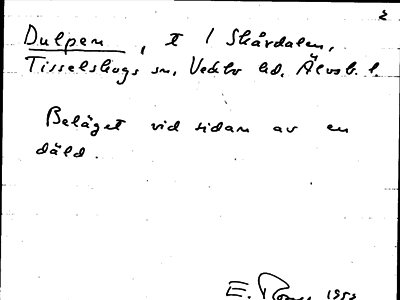 2
Dulpen, t / Skårdalen,
Tisselskogs sn, Vedbo hd, Älvsb. l.
Beläget vid sidan av en
däld.
E. 195